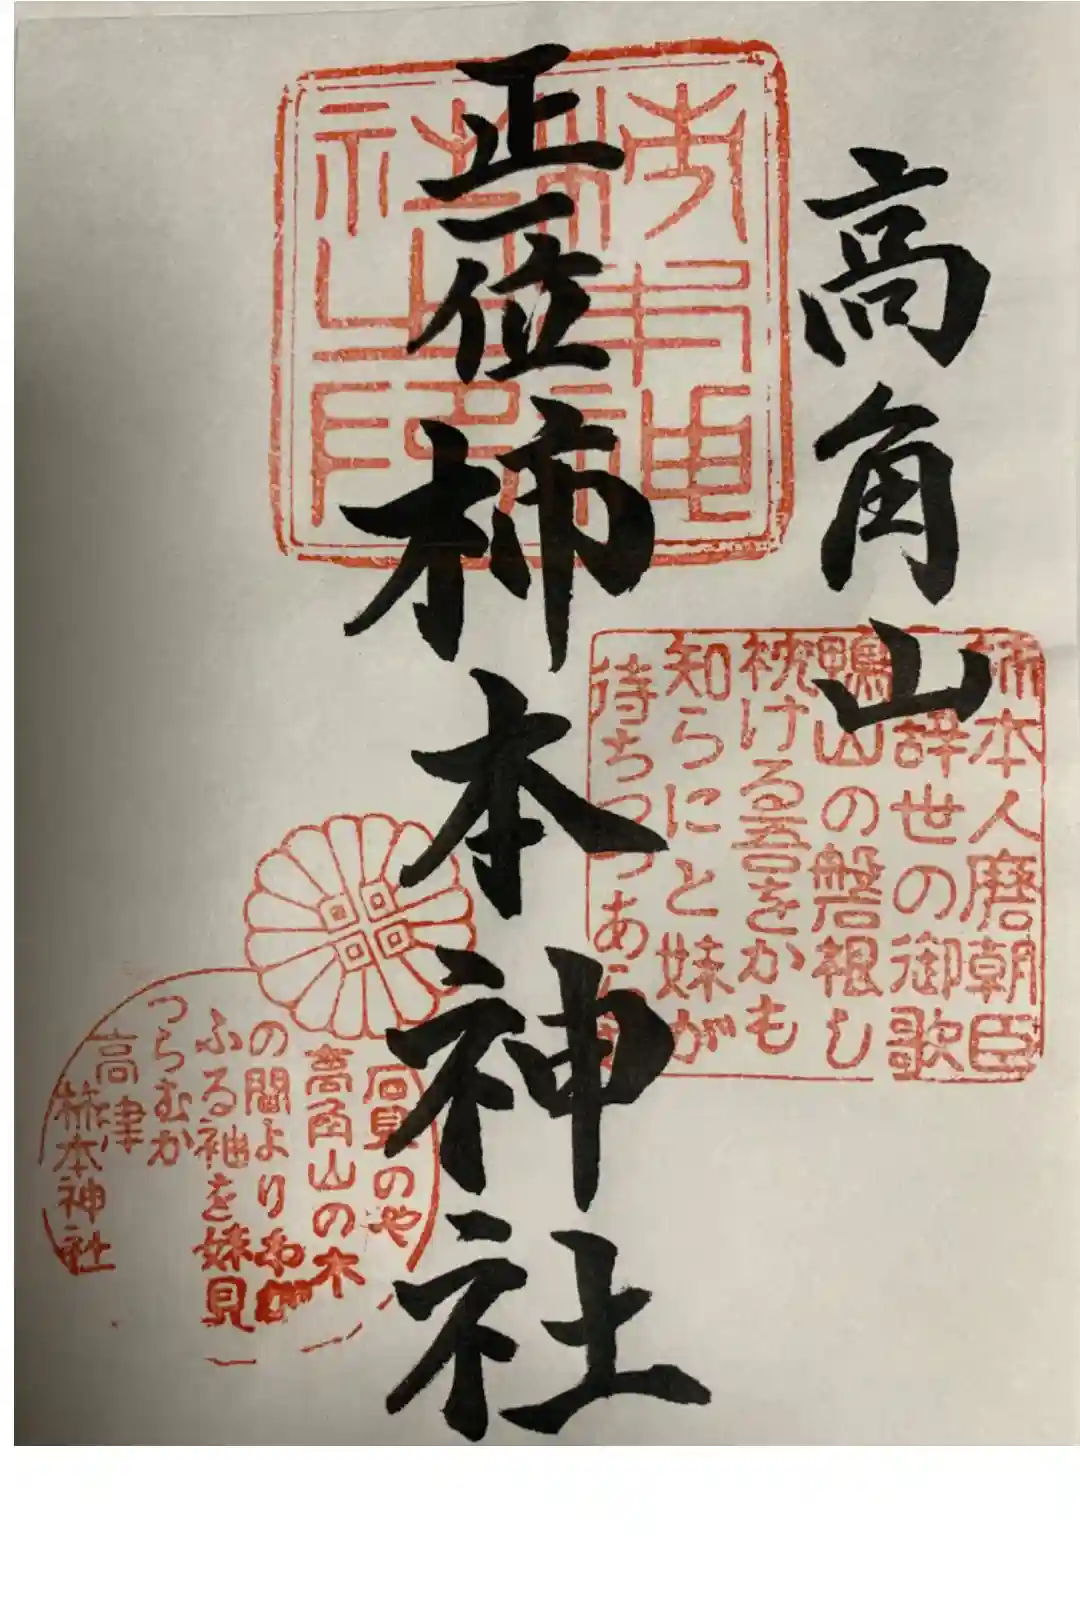 高角山
正一位
柿本神社
柿本人麿朝臣
辞世の御歌
鴨山の磐根し
枕ける吾をかも
知らにと妹が
待ちつつあ
石見のや
高角山の木
の間よりわが
ふる袖を妹見
つらむか
高津
柿本神社